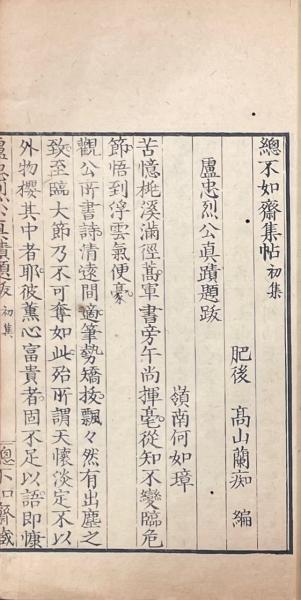 總不如齋集帖 初集
肥後 高山蘭痴 編
盧忠烈公真蹟題跋
嶺南何如璋
苦憶桃溪滿徑蒿軍書旁午尚揮毫從知不變臨危
節悟到浮雲氣便豪
觀公所書詩清遠閒適筆勢矯拔飄々然有出塵之
致至臨大節乃不可奪如此殆所謂天懷淡定不以
外物櫻其中者耶彼薰心富貴者固不足以語即慷
盧忠烈公真蹟題跋 初集 總不如齋藏